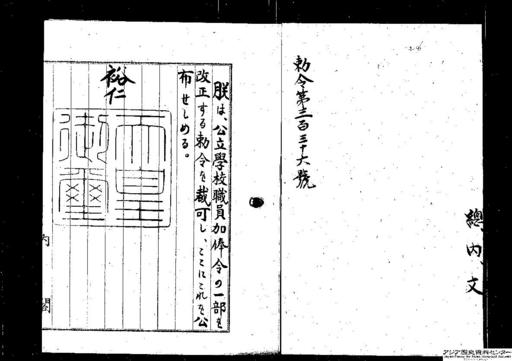 勅令第三百三十六號
總、内、文
朕は、公立學校職員加俸令の一部を
改正する勅令を裁可し、ここにこれを公
布せしめる。
裕仁
天皇
御璽
内閣
アジア歴史資料センター